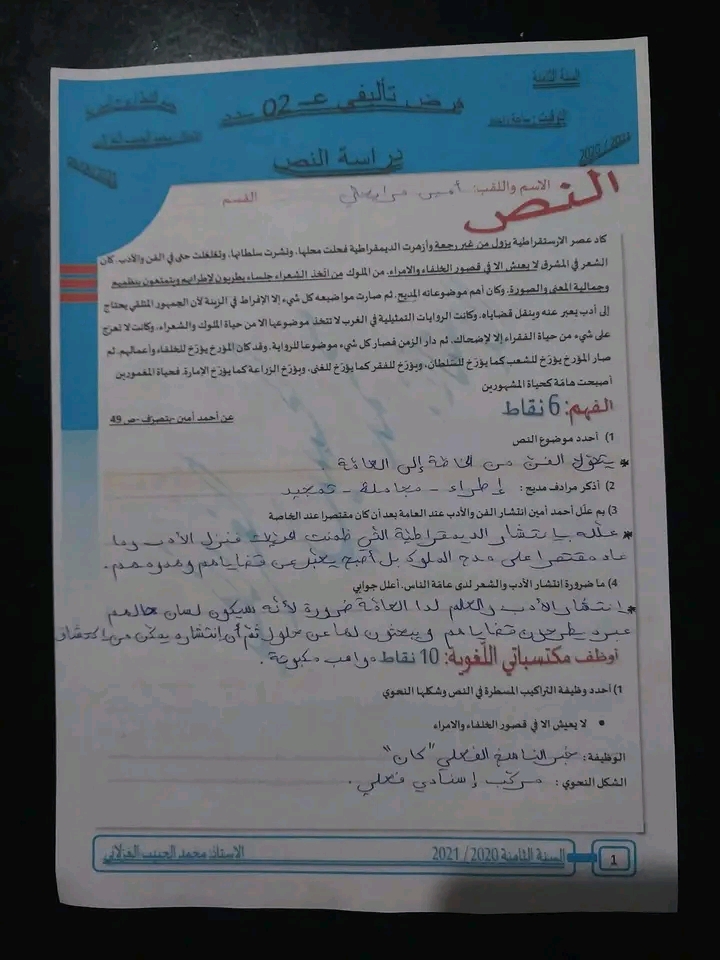 السنة الثامنة
فرض تأليفي عـ 02 ـدد
2020/2021
دراسة النص
النص
الاسم واللقب: أمين القسم
كاد عصر الارستقراطية يزول من غير رجعة وأزهرت الديمقراطية فحلت محلها، ونشرت سلطانها، وتغلغلت حتى في الفن والأدب. كان
الشعر في المشرق لا يعيش الا في قصور الخلفاء والامراء. من الملوك من اتخذ الشعراء جلساء يطربون لإطرائهم ويتمتعون بتنظيم
وجمالية المعنى والصورة. وكان أهم موضوعاته المديح. ثم صارت مواضيعه كل شيء إلا الإفراط في الزينة لأن الجمهور المتلقي يحتاج
إلى أدب يعبر عنه وينقل قضاياه. وكانت الروايات التمثيلية في الغرب لا تتخذ موضوعها الا من حياة الملوك والشعراء. وكانت لا تعرج
على شيء من حياة الفقراء إلا لإضحاك. ثم دار الزمن فصار كل شيء موضوعا للرواية. وقد كان المؤرخ يؤرخ للخلفاء وأعمالهم. ثم
صار المؤرخ يؤرخ للشعب كما يؤرخ للسلطان، ويؤرخ للفقر كما يؤرخ للغنى، ويؤرخ الزراعة كما يؤرخ الإمارة. فحياة المغمورين
أصبحت هامة كحياة المشهورين
عن أحمد أمين -بتصرف- ص 49
الفهم: 6 نقاط
1) أحدد موضوع النص
* يتحول الفن من الخاصة إلى العامة .
2) أذكر مرادف مديح: إطراء - مجاملة - تمجيد
3) بم علّل أحمد أمين انتشار الفن والأدب عند العامة بعد أن كان مقتصرا عند الخاصة
* علله بانتشار الديمقراطية التي ضمنت الحريات فنزل الأدب وما
عاد مقتصرا على مدح الملوك بل أصبح يعبّر عن قضاياهم وهمومهم .
4) ما ضرورة انتشار الأدب والشعر لدى عامة الناس. أعلل جوابي
* انتشار الأدب والعلم لدا العامة ضرورة لأنه سيكون لسان حالهم
عبره يطرحون قضاياهم ويبحثون لها عن حلول ثمّ أن انتشاره يمكن من اكتشاف
مواهب مكبوتة .
أوظف مكتسباتي اللّغوية: 10 نقاط
1) أحدد وظيفة التراكيب المسطرة في النص وشكلها النحوي
• لا يعيش الا في قصور الخلفاء والامراء
الوظيفة : خبر الناسخ الفعلي "كان"
الشكل النحوي : مركب إسنادي فعلي .
1
السنة الثامنة 2020/ 2021
الاستاذ: محمد الحبيب